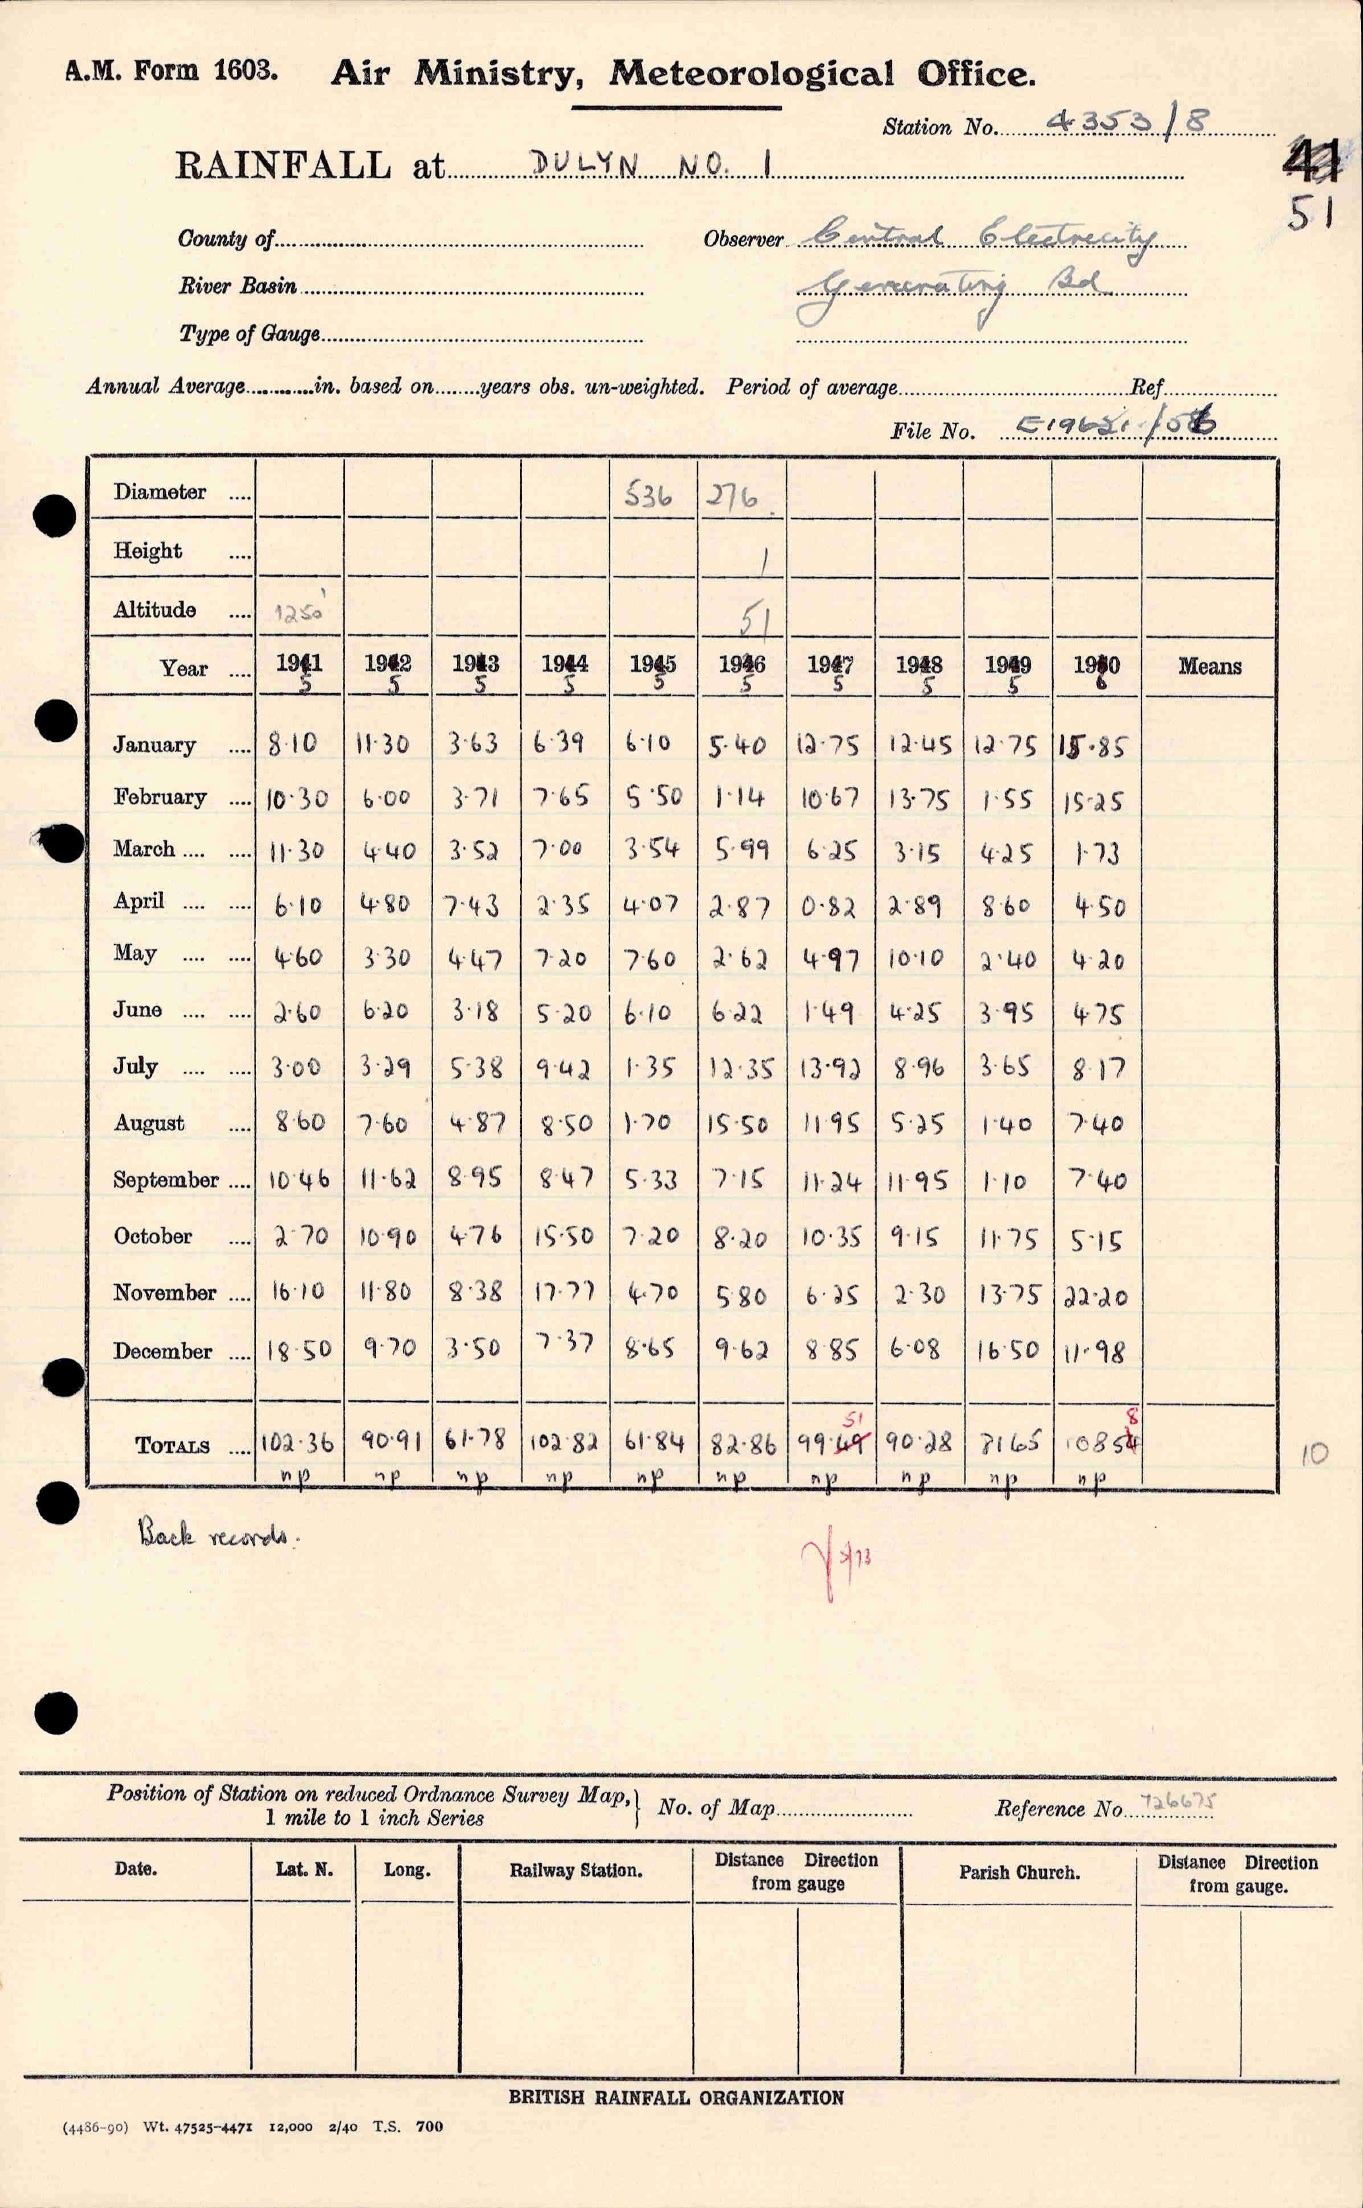 A.M. Form 1603. Air Ministry, Meteorological Office.
Station No. 4353/8
RAINFALL at DULYN NO. 1
41
51
County of Observer Central Electricity
River Basin Generating Bd
Type of Gauge
Annual Average in. based on years obs. un-weighted. Period of average Ref
File No.
Diameter 536 276
Height 1
Altitude 1250' 51
Year 1941 1942 1943 1944 1945 1946 1947 1948 1949 1950 Means
5 5 5 5 5 5 5 5 5 6
January 8·10 11·30 3·63 6·39 6·10 5·40 12·75 12·45 12·75 15·85
February 10·30 6·00 3·71 7·65 5·50 1·14 10·67 13·75 1·55 15·25
March 11·30 4·40 3·52 7·00 3·54 5·99 6·25 3·15 4·25 1·73
April 6·10 4·80 7·43 2·35 4·07 2·87 0·82 2·89 8·60 4·50
May 4·60 3·30 4·47 7·20 7·60 2·62 4·97 10·10 2·40 4·20
June 2·60 6·20 3·18 5·20 6·10 6·22 1·49 4·25 3·95 4·75
July 3·00 3·29 5·38 9·42 1·35 12·35 13·92 8·96 3·65 8·17
August 8·60 7·60 4·87 8·50 1·70 15·50 11·95 5·25 1·40 7·40
September 10·46 11·62 8·95 8·47 5·33 7·15 11·24 11·95 1·10 7·40
October 2·70 10·90 4·76 15·50 7·20 8·20 10·35 9·15 11·75 5·15
November 16·10 11·80 8·38 17·77 4·70 5·80 6·25 2·30 13·75 22·20
December 18·50 9·70 3·50 7·37 8·65 9·62 8·85 6·08 16·50 11·98
51 8
TOTALS 102·36 90·91 61·78 102·82 61·84 82·86 99·49 90·28 81·65 108·54
np np np np np np np np np np
10
Back records.
5/73
Position of Station on reduced Ordnance Survey Map,
1 mile to 1 inch Series
No. of Map Reference No. 726675
Date. Lat. N. Long. Railway Station. Distance Direction from gauge Parish Church. Distance Direction from gauge.
BRITISH RAINFALL ORGANIZATION
(4486-90) Wt. 47525-4471 12,000 2/40 T.S. 700